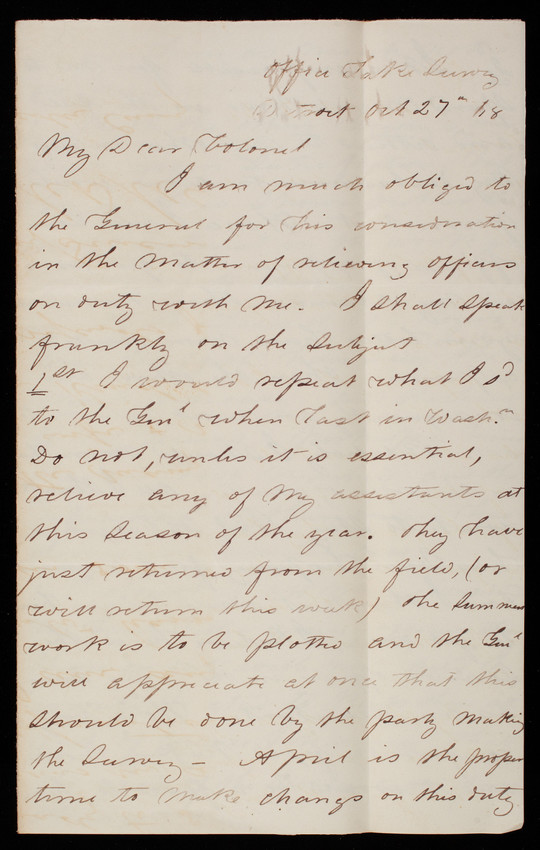 Office Lake Survey
Detroit Oct 27th /68
My Dear Colonel
I am much obliged to
the General for his consideration
in the matter of relieving officers
on duty with me. I shall speak
frankly on the subject
1st I would repeat what I sd
to the Genl when last in Washn.
Do not, unless it is essential,
relieve any of my assistants at
this season of the year. They have
just returned from the field, (or
will return this week) The summer
work is to be plotted and the Genl
will appreciate at once that this
should be done by the party making
the survey – April is the proper
time to make changes on this duty